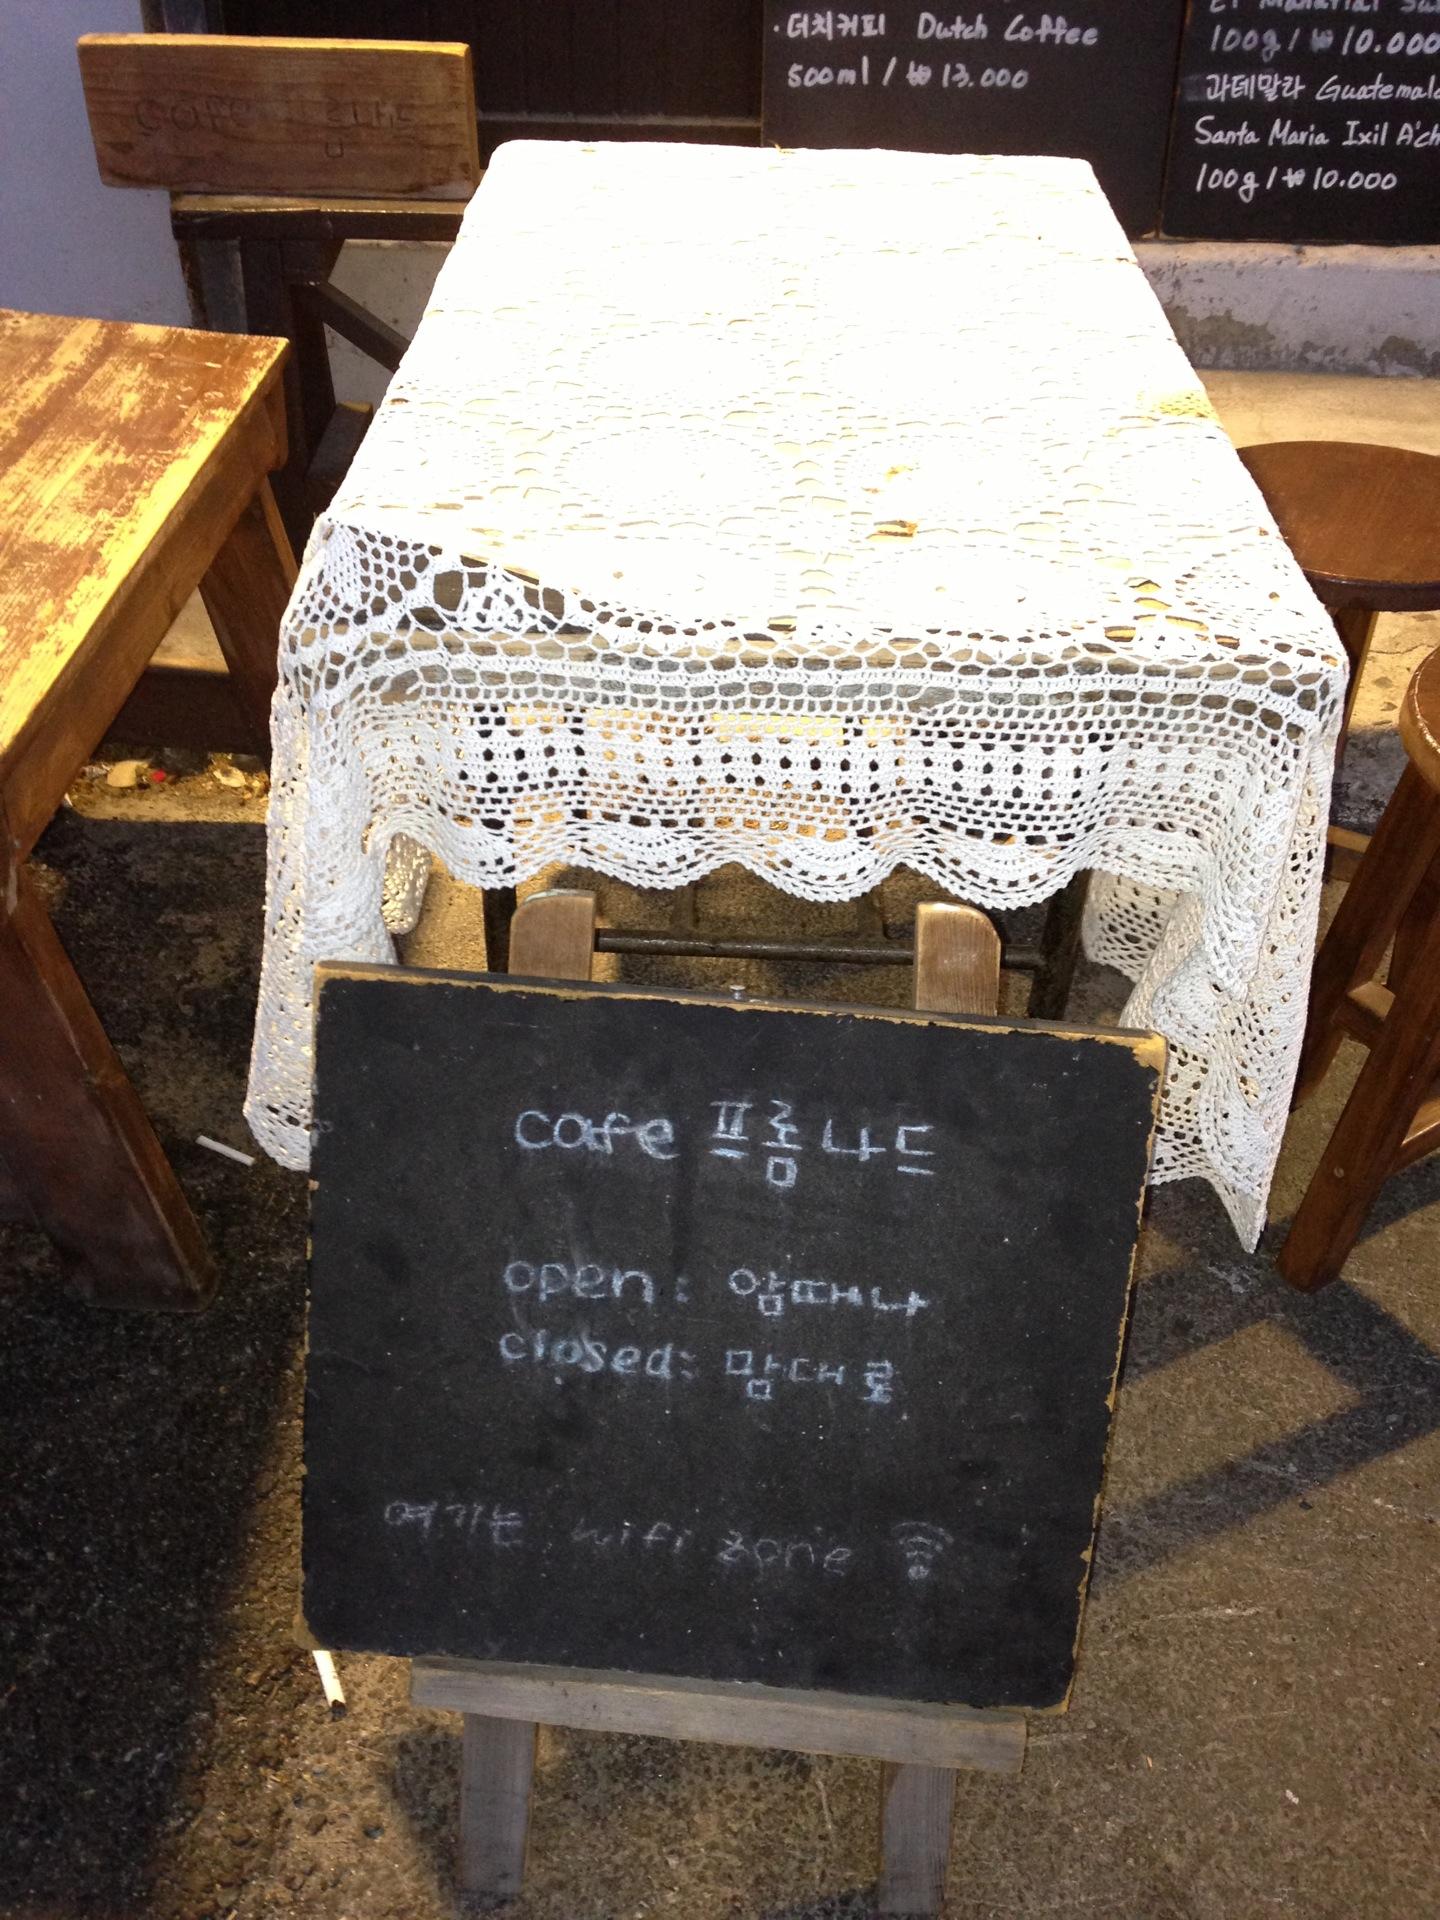 · 더치커피 Dutch Coffee
500ml / ₩ 13.000
100g / ₩ 10.000
과테말라 Guatemala
Santa Maria Ixil A'ch
100g / ₩ 10.000
cafe 프롬나드
cafe 프롬나드
open : 암때나
closed: 맘대로
여기는 wifi zone